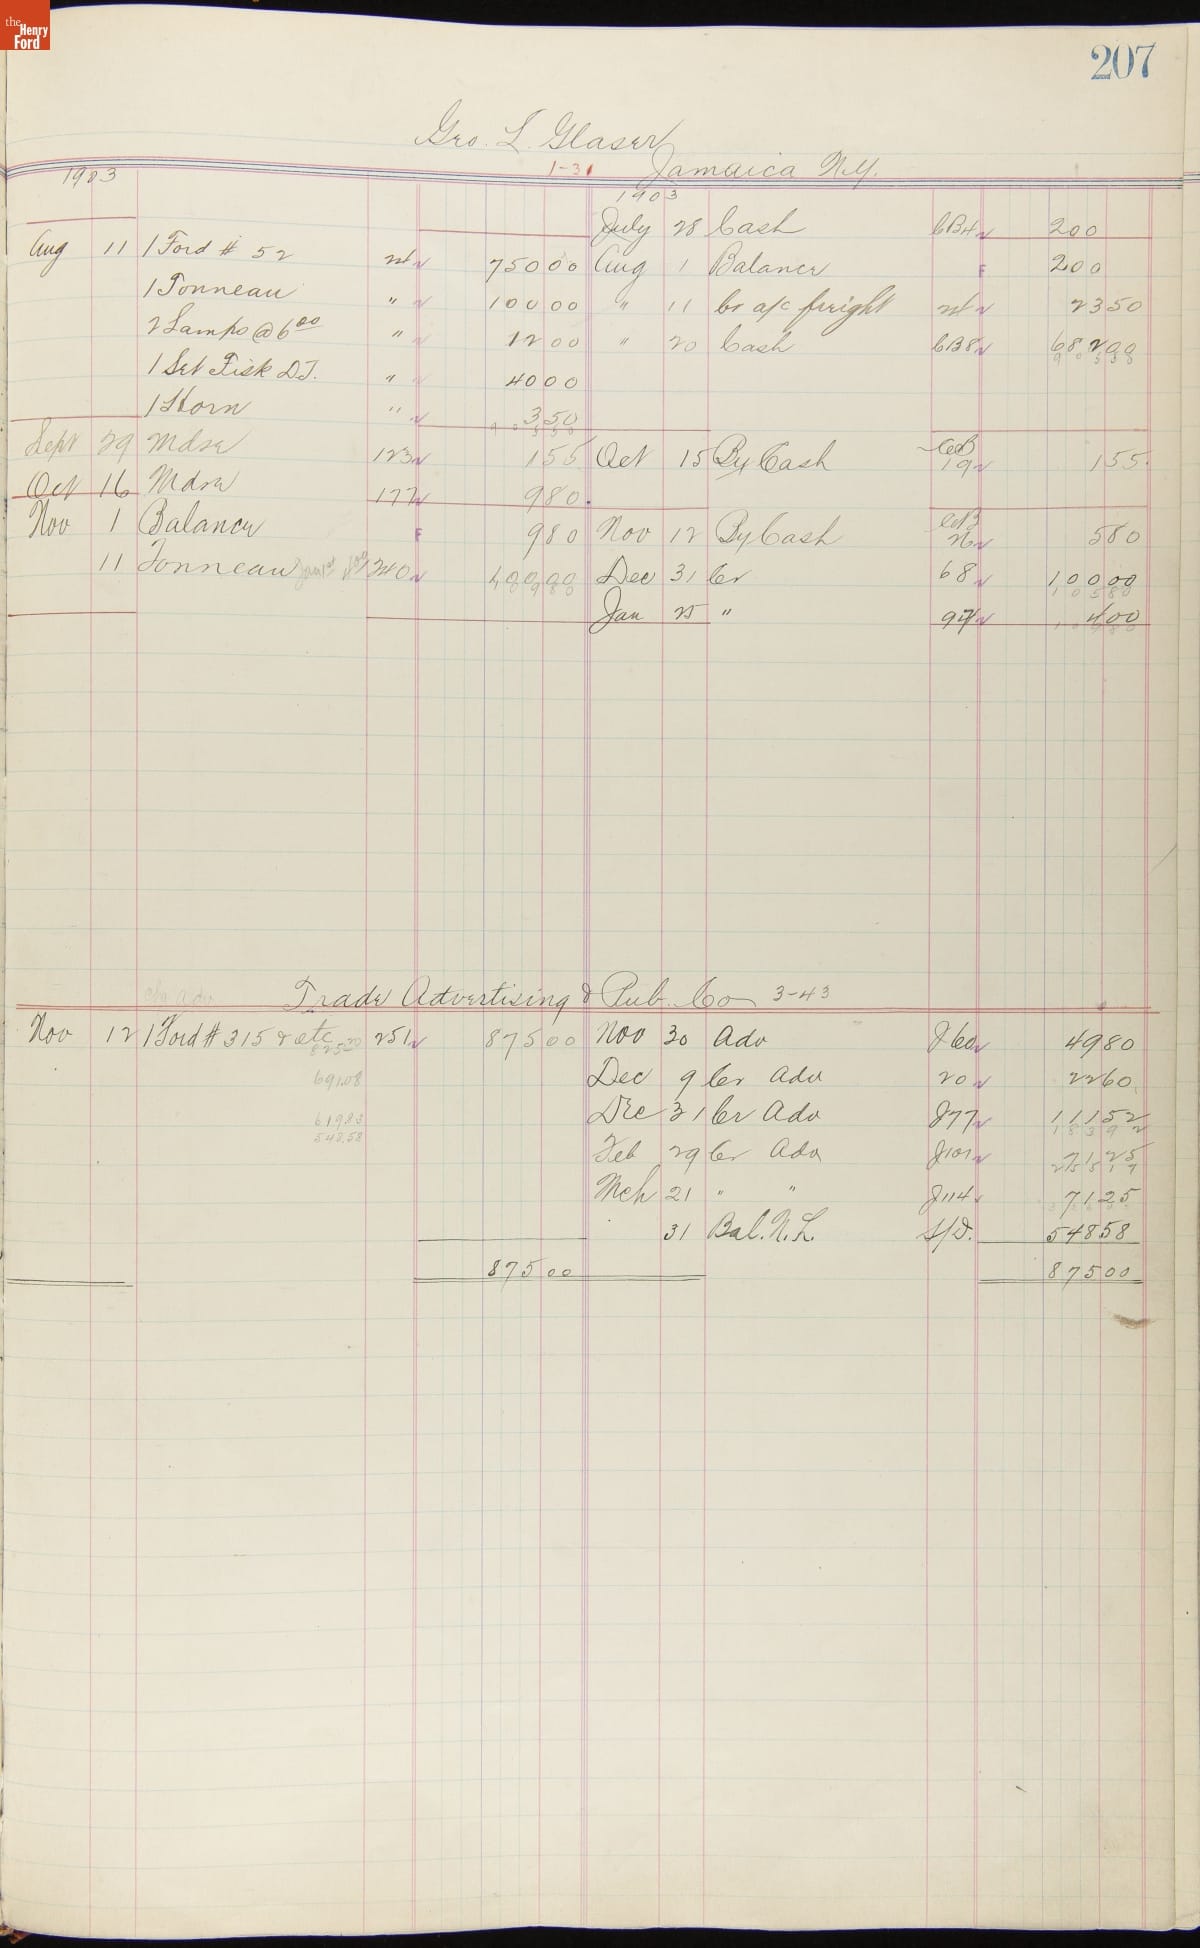 the Henry Ford
207
Geo. L. Glaser
1-31 Jamaica N.Y.
1903 1903
July 28 Cash CB4 200
Aug 11 1 Ford # 52 21 75000 Aug 1 Balance F 200
1 Tonneau " 10000 " 11 Cr a/c freight 21 2350
2 Lamps @ 6 00 " 1200 " 20 Cash CB8 68200
1 Set Fisk D.T. " 4000
1 Horn " 350
Sept 29 Mdse 123 155 Oct 15 By Cash CB 19 155
Oct 16 Mdse 177 980
Nov 1 Balance F 980 Nov 12 By Cash CB 26 580
11 Tonneau 240 Dec 31 Cr 68 10000
Jan 25 " 97 400
Trade Advertising & Pub. Co 3-43
Nov 12 1 Ford # 315 & etc 251 87500 Nov 30 Adv J60 4980
825.20
691.08 Dec 9 Cr Adv 20 2260
619.83 Dec 31 Cr Adv J77 11152
548.58
Feb 29 Cr Adv J101 7125
Mch 21 " " J114 7125
31 Bal. N.L. S/D. 54858
87500 87500